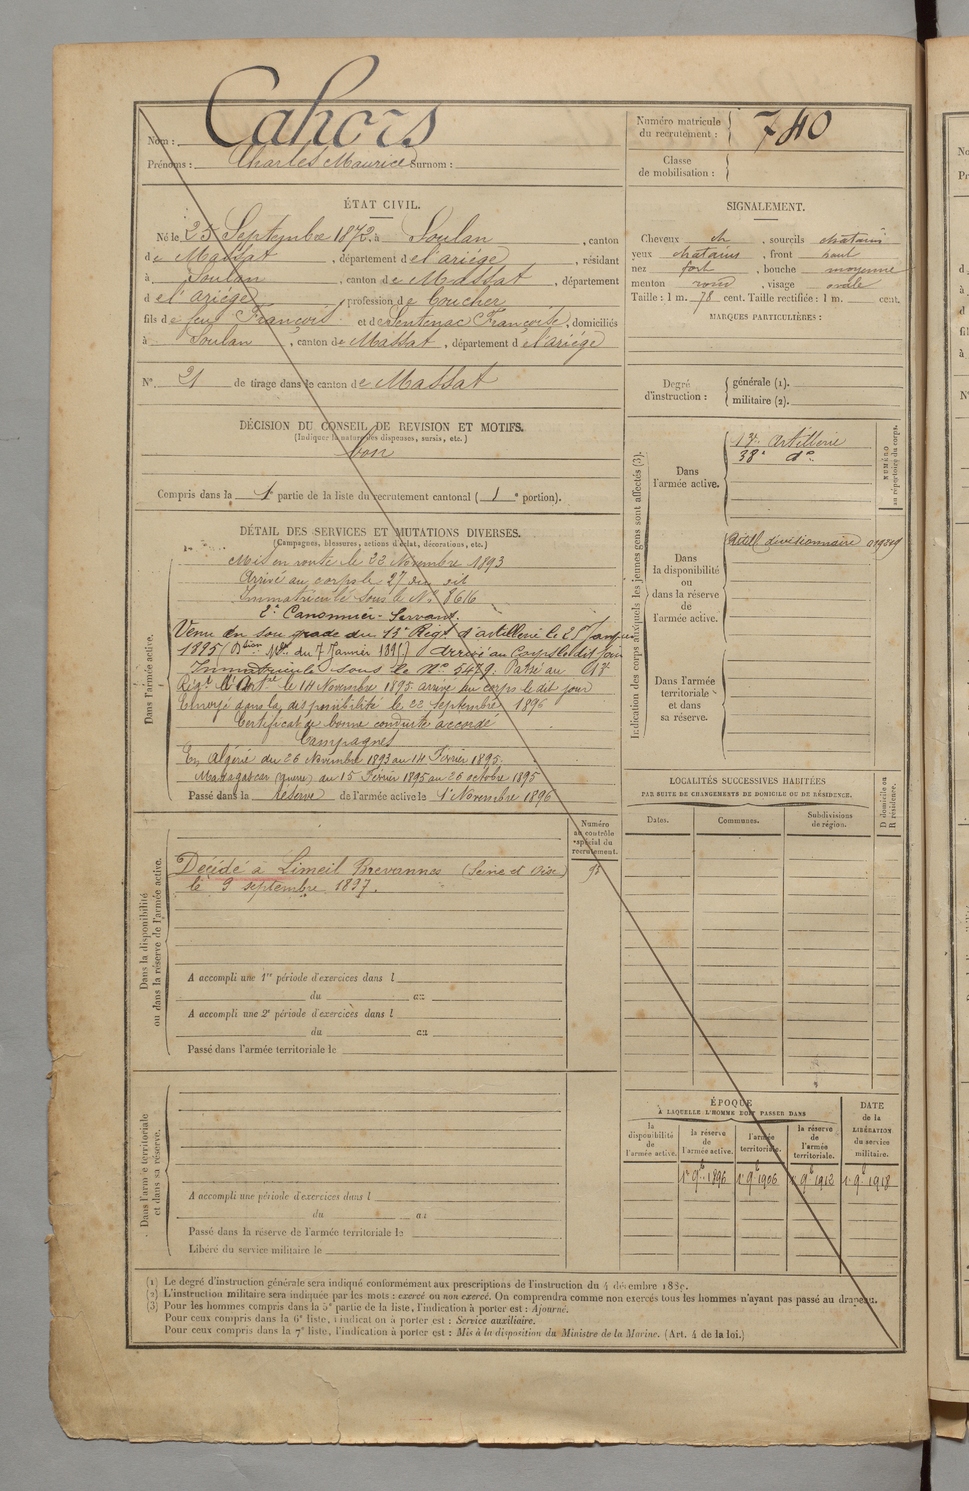 Cahors
Nom :
Prénoms : Charles Maurice Surnom :
Numéro matricule du recrutement : 740
Classe de mobilisation :
ÉTAT CIVIL.
Né le 25 Septembre 1872 à Soulan, canton
de Massat, département de l'ariège, résidant
à Soulan, canton de Massat, département
de l'ariège, profession de Coucher
fils de feu François et de Sentenac Françoise, domiciliés
à Soulan, canton de Massat, département de l'ariège
N° 21 de tirage dans le canton de Massat
DÉCISION DU CONSEIL DE REVISION ET MOTIFS.
(Indiquer la nature des dispenses, sursis, etc.)
bon
Compris dans la 1e partie de la liste du recrutement cantonal (1e portion).
DÉTAIL DES SERVICES ET MUTATIONS DIVERSES.
(Campagnes, blessures, actions d'éclat, décorations, etc.)
Dans l'armée active.
Mis en route le 22 Novembre 1893
Arrivé au corps le 27 du dit
Immatriculé sous le N° 8616
2e Canonnier-Servant.
Venu en son grade du 13e Régt d'artillerie le 25 Janvier
1895 (Dtion Mlle du 7 Janvier 1895) Arrivé au Corps le dit jour
Immatriculé sous le N° 5479. Passé au 13e
Régt d'Artrie le 14 Novembre 1895 arrivé au corps le dit jour
Envoyé dans la disponibilité le 22 Septembre 1896
Certificat de bonne conduite accordé
Campagnes
En Algérie du 26 Novembre 1893 au 14 Février 1895.
Madagascar (guerre) du 15 Février 1895 au 26 octobre 1895
Passé dans la réserve de l'armée active le 1er Novembre 1896
Dans la disponibilité
ou dans la réserve de l'armée active.
Numéro
au contrôle
spécial du
recrutement.
Décédé à Limeil Brevannes (Seine et Oise)
le 9 septembre 1897.
A accompli une 1re période d'exercices dans l
du au
A accompli une 2e période d'exercices dans l
du au
Passé dans l'armée territoriale le
Dans l'armée territoriale
et dans sa réserve.
A accompli une période d'exercices dans l
du au
Passé dans la réserve de l'armée territoriale le
Libéré du service militaire le
SIGNALEMENT.
Cheveux ch, sourcils chatains
yeux chatains, front haut
nez fort, bouche moyenne
menton rond, visage ovale
Taille : 1 m. 78 cent. Taille rectifiée : 1 m. cent.
MARQUES PARTICULIÈRES :
Degré d'instruction :
générale (1).
militaire (2).
Indication des corps auxquels les jeunes gens sont affectés (3).
NUMÉRO
au répertoire du corps.
Dans
l'armée active.
13e Artillerie
38e do
Dans
la disponibilité
ou
dans la réserve
de
l'armée active.
Artill divisionnaire
Dans l'armée
territoriale
et dans
sa réserve.
LOCALITÉS SUCCESSIVES HABITÉES
PAR SUITE DE CHANGEMENTS DE DOMICILE OU DE RÉSIDENCE.
Dates.
Communes.
Subdivisions
de région.
D domicile ou
R résidence.
ÉPOQUE
À LAQUELLE L'HOMME DOIT PASSER DANS
DATE
de la
LIBÉRATION
du service
militaire.
la
disponibilité
de
l'armée active.
la réserve
de
l'armée active.
l'armée
territoriale.
la réserve
de
l'armée
territoriale.
1er 9bre 1896
1er 9bre 1906
1er 9bre 1912
1er 9bre 1918
(1) Le degré d'instruction générale sera indiqué conformément aux prescriptions de l'instruction du 4 décembre 1889.
(2) L'instruction militaire sera indiquée par les mots : exercé ou non exercé. On comprendra comme non exercés tous les hommes n'ayant pas passé au drapeau.
(3) Pour les hommes compris dans la 5e partie de la liste, l'indication à porter est : Ajourné.
Pour ceux compris dans la 6e liste, l'indication à porter est : Service auxiliaire.
Pour ceux compris dans la 7e liste, l'indication à porter est : Mis à la disposition du Ministre de la Marine. (Art. 4 de la loi.)